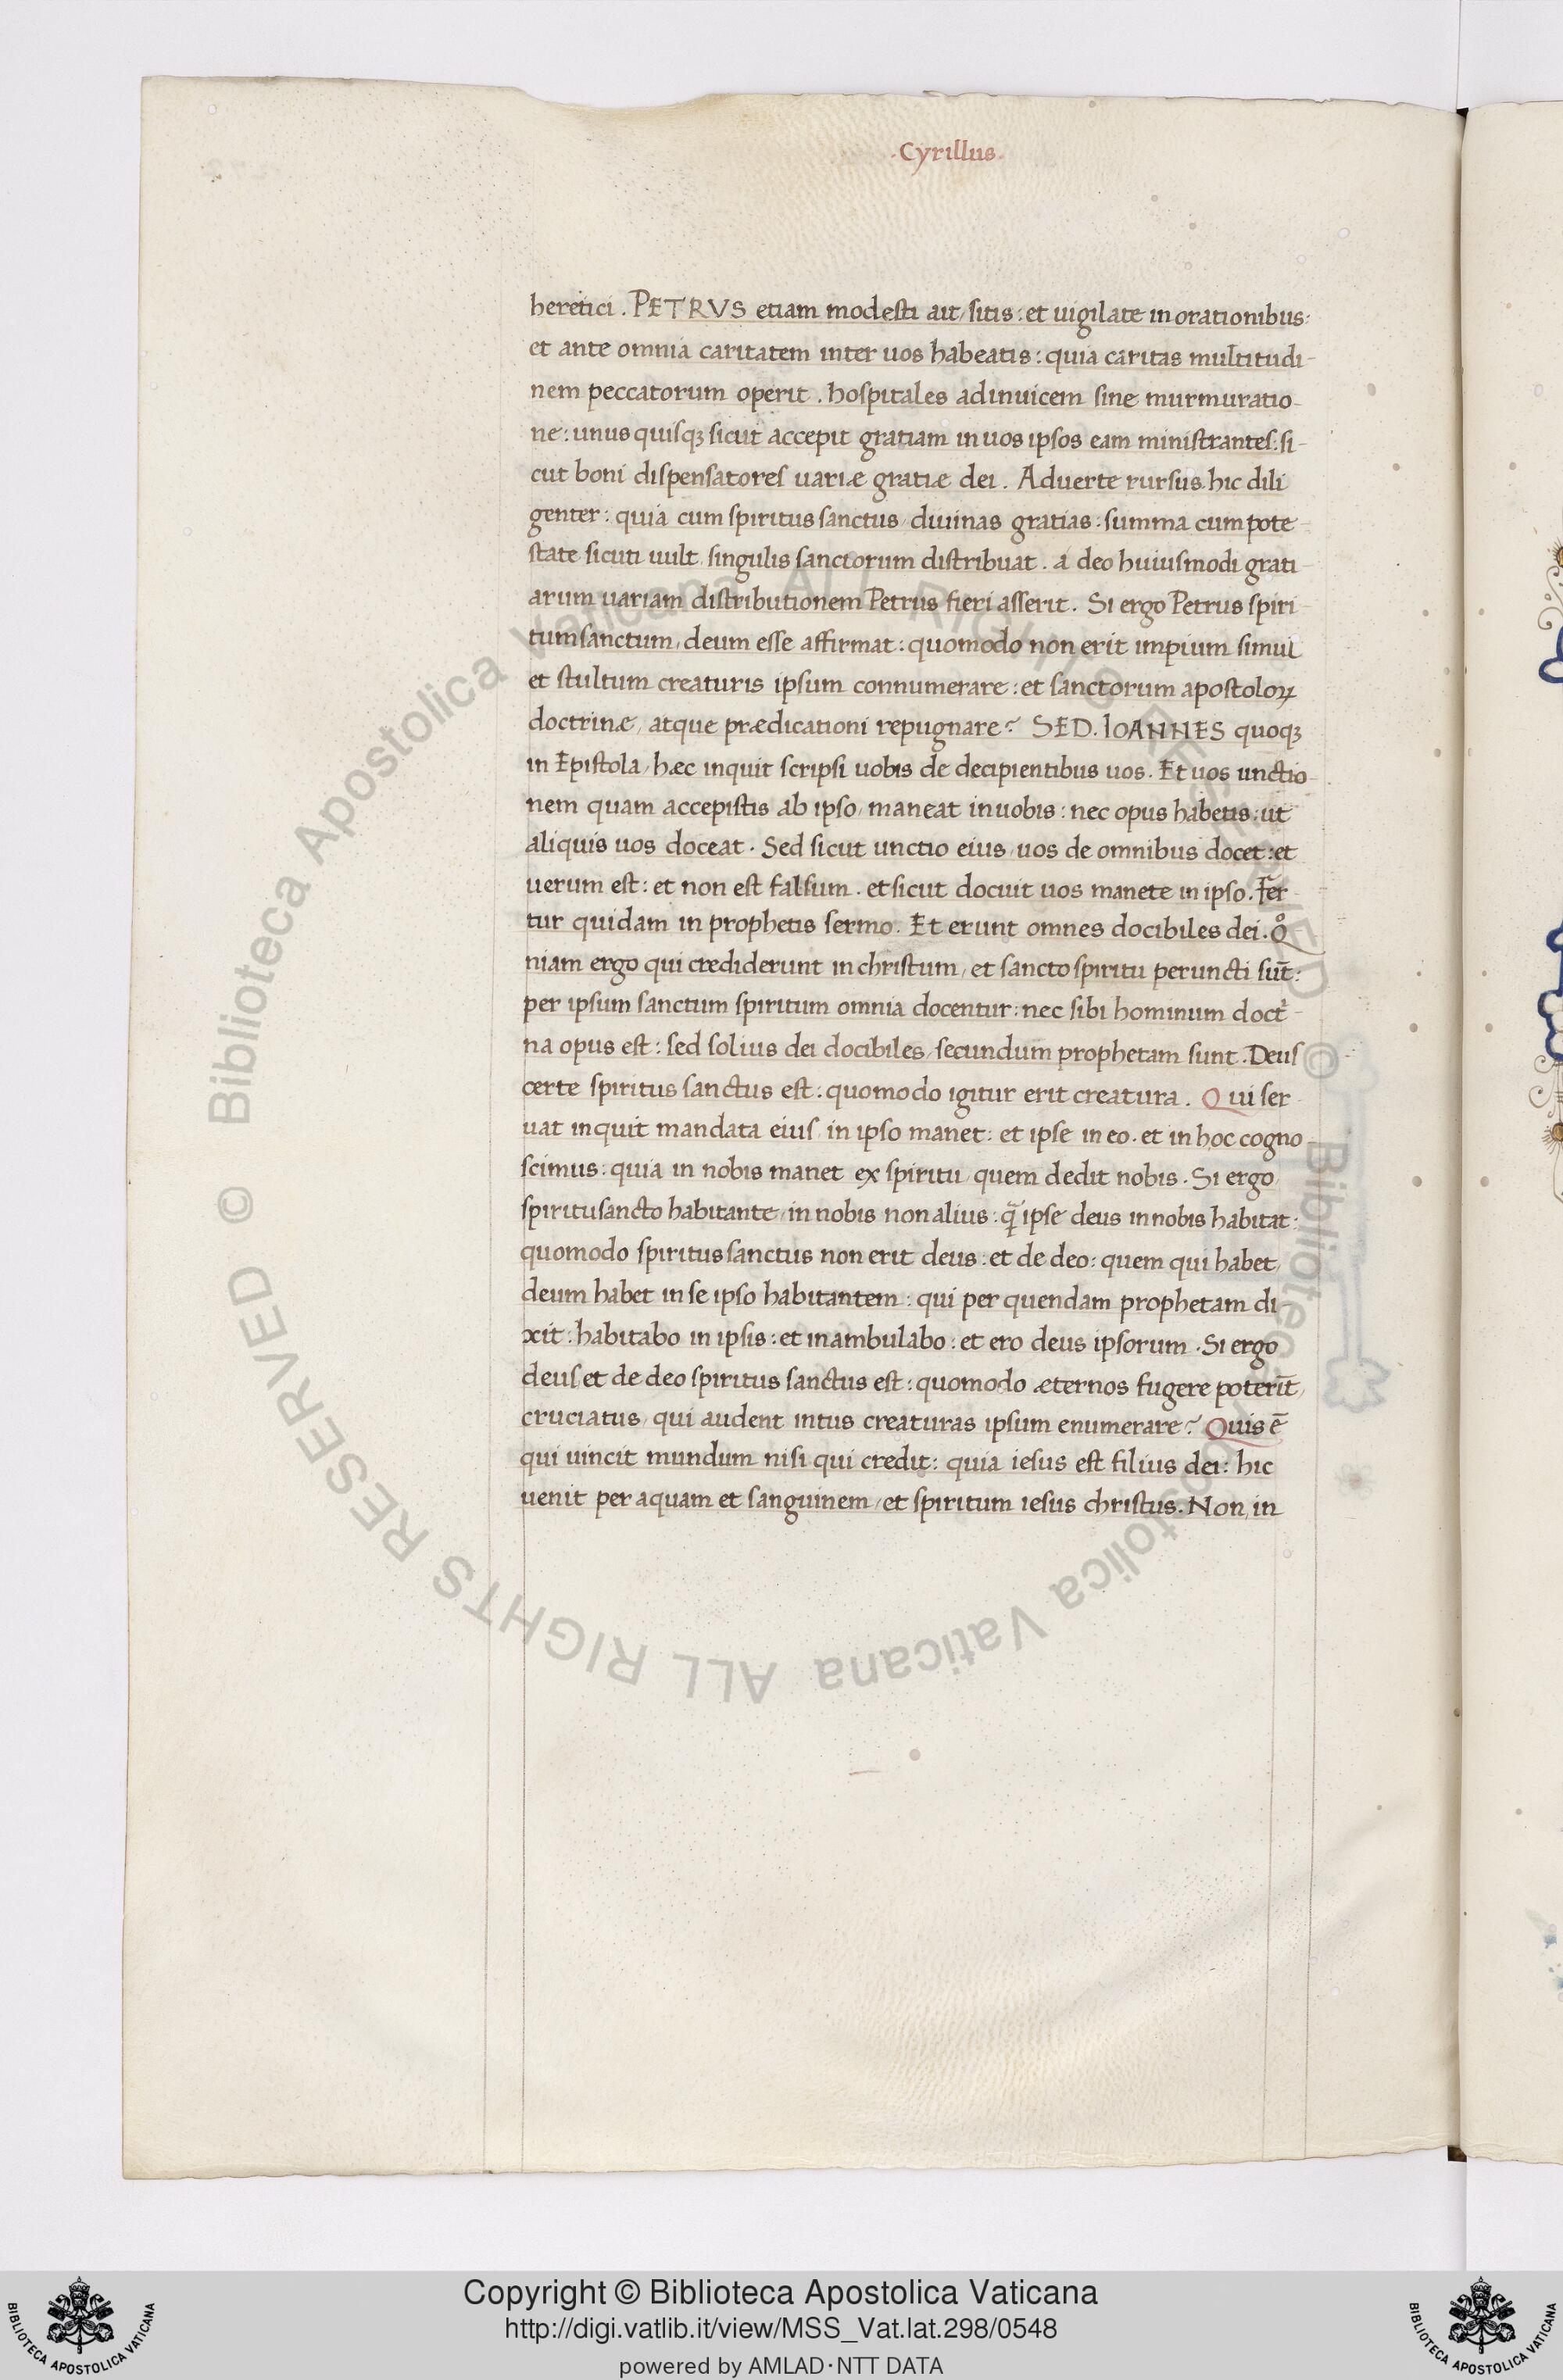 ·Cyrillus·
heretici . PETRVS etiam modesti ait, sitis : et uigilate in orationibus :
et ante omnia caritatem inter uos habeatis : quia caritas multitudi-
nem peccatorum operit . hospitales adinuicem sine murmuratio-
ne : unus quisqꝫ sicut accepit gratiam in uos ipsos eam ministrantes : si-
cut boni dispensatores uariæ gratiæ dei . Aduerte rursus hic dili
genter : quia cum spiritus sanctus diuinas gratias : summa cum pote-
state sicuti uult singulis sanctorum distribuat . a deo huiusmodi grati-
arum uariam distributionem Petrus fieri asserit . Si ergo Petrus spiri-
tum sanctum, deum esse affirmat : quomodo non erit impium simul
et stultum creaturis ipsum connumerare : et sanctorum apostoloꝝ
doctrinæ, atque prædicationi repugnare ? SED . IOANNES quoqꝫ
in Epistola, hæc inquit scripsi uobis de decipientibus uos . Et uos unctio-
nem quam accepistis ab ipso, maneat in uobis : nec opus habetis : ut
aliquis uos doceat . Sed sicut unctio eius, uos de omnibus docet : et
uerum est : et non est falsum . et sicut docuit uos manete in ipso . Fer-
tur quidam in prophetis sermo . Et erunt omnes docibiles dei . qͦ
niam ergo qui crediderunt in christum, et sancto spiritu peruncti sūt :
per ipsum sanctum spiritum omnia docentur : nec sibi hominum doctͥ-
na opus est : sed solius dei docibiles, secundum prophetam sunt . Deus
certe spiritus sanctus est : quomodo igitur erit creatura . Qui ser-
uat inquit mandata eius in ipso manet : et ipse in eo . et in hoc cogno-
scimus : quia in nobis manet ex spiritu quem dedit nobis . Si ergo
spiritu sancto habitante, in nobis non alius : ꝙ̃ ipse deus in nobis habitat :
quomodo spiritus sanctus non erit deus : et de deo : quem qui habet,
deum habet in se ipso habitantem : qui per quendam prophetam di-
xit : habitabo in ipsis : et inambulabo : et ero deus ipsorum . Si ergo
deus et de deo spiritus sanctus est : quomodo æternos fugere poterīt,
cruciatus, qui audent intus creaturas ipsum enumerare ? Quis ē
qui uincit mundum nisi qui credit : quia iesus est filius dei : hic
uenit per aquam et sanguinem, et spiritum iesus christus . Non, in
© Biblioteca Apostolica Vaticana ALL RIGHTS RESERVED
© Biblioteca Apostolica Vaticana ALL RIGHTS RESERVED
Copyright © Biblioteca Apostolica Vaticana
http://digi.vatlib.it/view/MSS_Vat.lat.298/0548
powered by AMLAD·NTT DATA
BIBLIOTECA APOSTOLICA VATICANA
BIBLIOTECA APOSTOLICA VATICANA